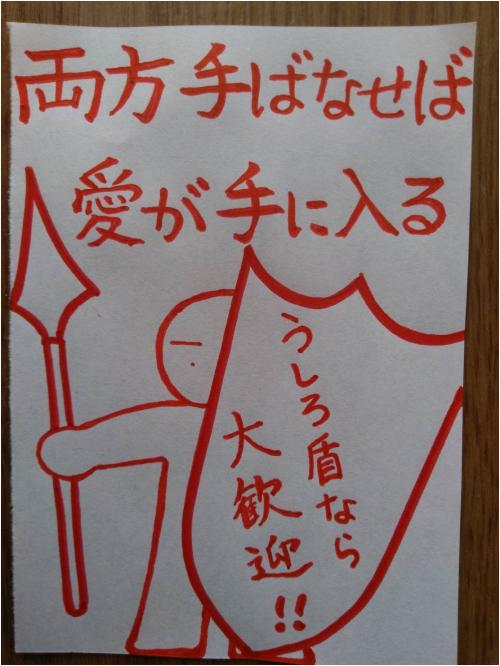 両方手ばなせば
愛が手に入る
うしろ盾なら
大歓迎!!